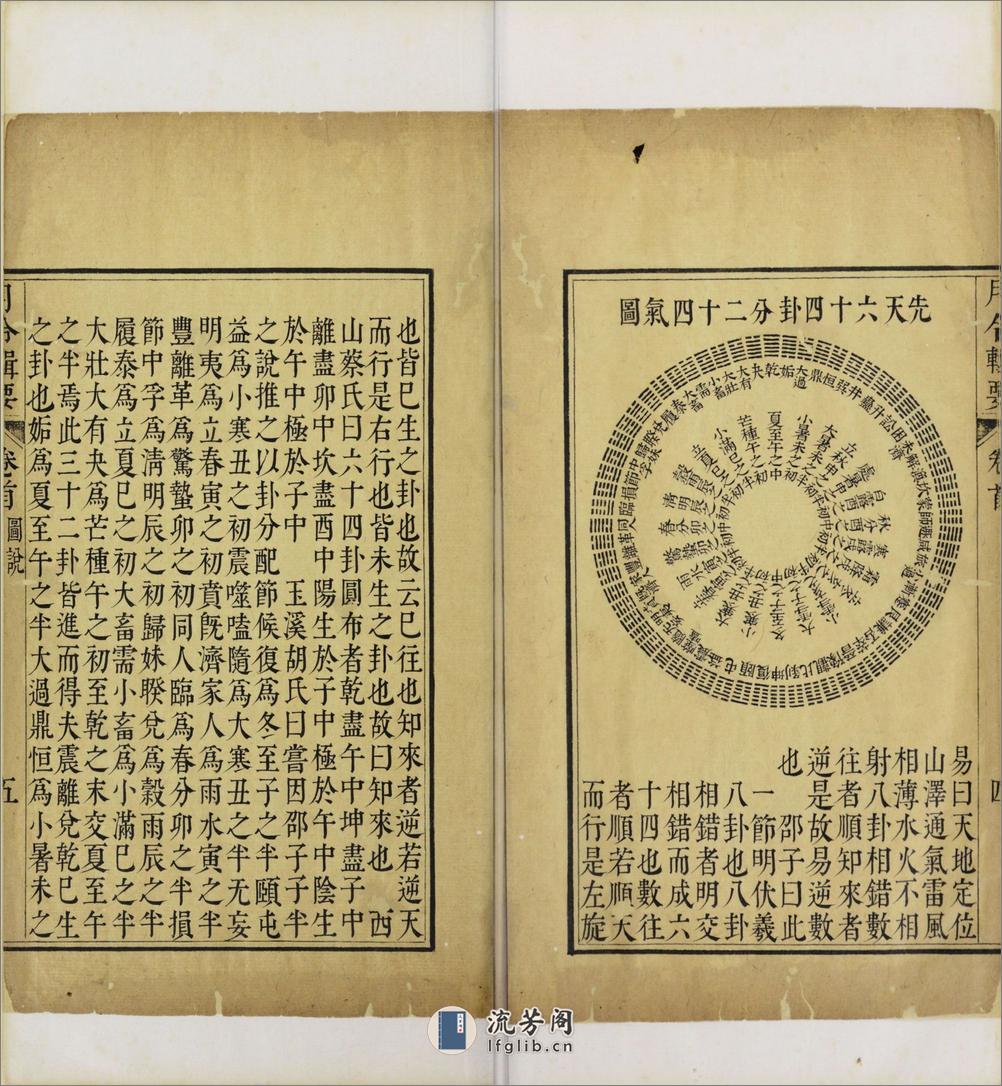 先天六十四卦分二十四氣圖
易曰天地定位
山澤通氣雷風
相薄水火不相
射八卦相錯數
往者順知來者
逆是故易逆數
也　邵子曰此
一節明伏羲
八卦也八卦
相錯者明交
相錯而成六
十四也數往
者順若順天
而行是左旋
也皆已生之卦也故云已往也知來者逆若逆天
而行是右行也皆未生之卦也故曰知來也　西
山蔡氏曰六十四卦圓布者乾盡午中坤盡子中
離盡卯中坎盡酉中陽生於子中極於午中陰生
於午中極於子中　玉溪胡氏曰嘗因邵子子半
之說推之以卦分配節候復爲冬至子之半頤屯
益爲小寒丑之初震噬嗑隨爲大寒丑之半无妄
明夷爲立春寅之初賁旣濟家人爲雨水寅之半
豐離革爲驚蟄卯之初同人臨爲春分卯之半損
節中孚爲淸明辰之初歸妹睽兌爲穀雨辰之半
履泰爲立夏巳之初大畜需小畜爲小滿巳之半
大壯大有夬爲芒種午之初至乾之末交夏至午
之半焉此三十二卦皆進而得夫震離兌乾已生
之卦也姤爲夏至午之半大過鼎恒爲小暑未之
月令輯要
卷首
圖說
五
流芳阁
lfglib.cn